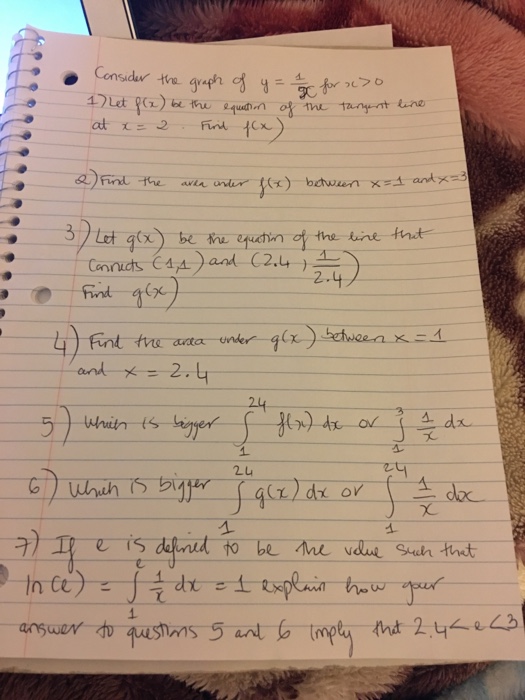 Consider the graph of y = 1/x for x>0
1) Let f(x) be the equation of the tangent line
at x = 2. Find f(x)
2) Find the area under f(x) between x=1 and x=3
3) Let g(x) be the equation of the line that
connects (1,1) and (2.4, 1/2.4)
Find g(x)
4) Find the area under g(x) between x = 1
and x = 2.4
5) Which is bigger ∫₁²⁴ f(x) dx or ∫₁³ 1/x dx
6) Which is bigger ∫₁²⁴ g(x) dx or ∫₁²⁴ 1/x dx
7) If e is defined to be the value such that
ln(e) = ∫₁ᵉ 1/x dx = 1 explain how your
answer to questions 5 and 6 imply that 2.4<e<3